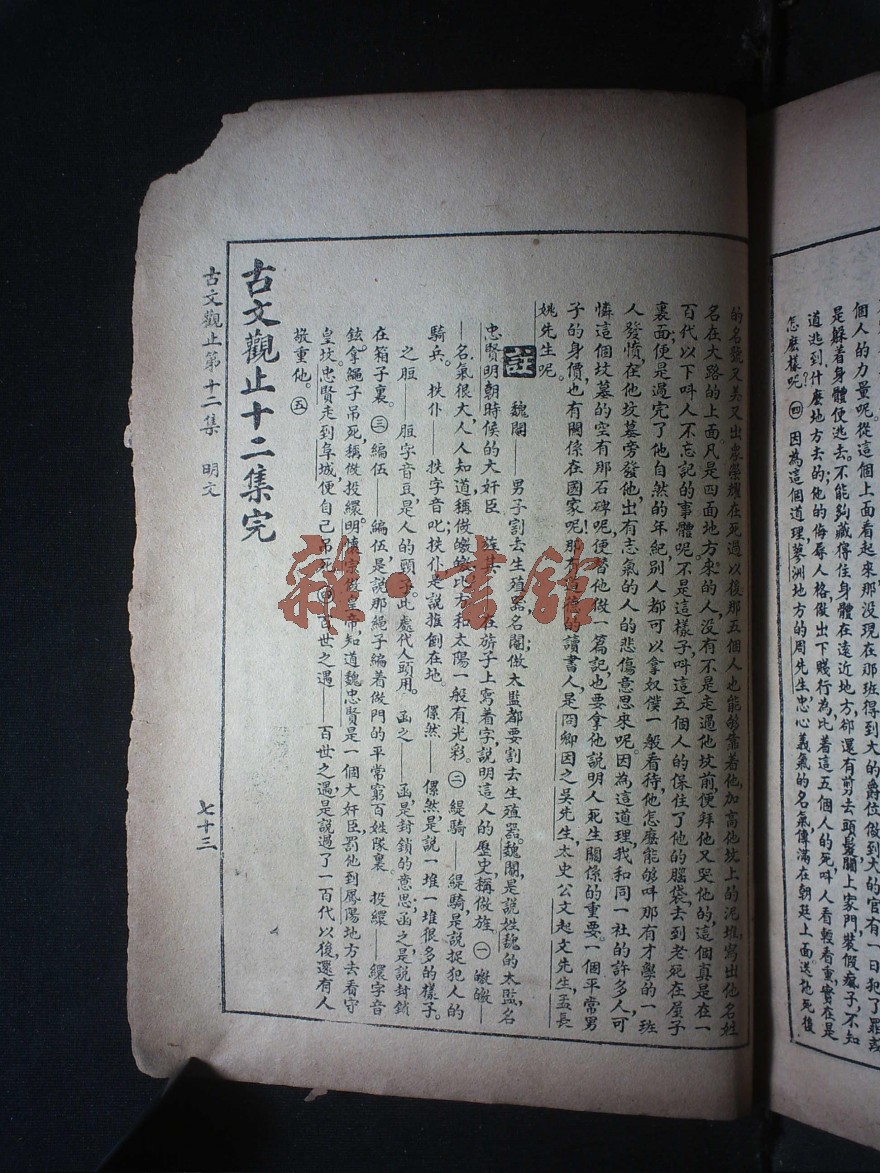 個人的力量呢從這個上面看起來那没現在那班得到大的爵位做到大的官有一日犯了罪
是躲着身體便逃去不能夠藏得住身體在遠近地方卻還有剪去頭髮關上家門裝假瘋子不知
道逃到什麽地方去的他的侮辱人格做出下賤行為比着這五個人的死叫人看輕看重實在是
怎麽樣呢㊃因為這個道理蓼洲地方的周先生忠心義氣的名氣傳滿在朝廷上面送他死後
的名號又美又出衆榮耀在死過以後那五個人也能够靠着他加高他坟上的泥堆寫出他名姓
名在大路的上面凡是四面地方來的人没有不是走過他坟前便拜他又哭他的這個真是在一
百代以下叫人不忘記的事體呢不是這樣子叫這五個人的保住了他的腦袋去到老死在屋子
裏面便是過完了他自然的年紀別人都可以拿奴僕一般看待他怎麽能够叫那有才學的一班
人發憤在他坟墓旁發他出有志氣的人的悲傷意思來呢因為這道理我和同一社的許多人可
憐這個坟墓的空有那石碑呢便替他做一篇記也要拿他說明人死生關係的重要一個平常男
子的身價也有關係在國家呢那有道德的讀書人是冏卿因之吳先生太史公文起文先生孟長
姚先生呢
註 魏閹——男子割去生殖器名閹做太監都要割去生殖器魏閹是說姓魏的太監名
忠賢明朝時候的大奸臣 旌其——在旂子上寫着字說明這人的歷史稱做旌㊀皦皦—
—名氣很大人人知道稱做皦皦比方和太陽一般有光彩㊁緹騎——緹騎是說捉犯人的
騎兵 抶仆——抶字音叱抶仆是說推倒在地 儽然——儽然是說一堆一堆很多的樣子
之脰——脰字音豆是人的頭子此處代人頭用 函之——函是封鎖的意思函之是說封鎖
在箱子裏㊂編伍——編伍是說那繩子編着做門的平常窮百姓隊裏 投繯——繯字音
鉉拿繩子吊死稱做投繯明懷宗做皇帝知道魏忠賢是一個大奸臣罰他到鳳陽地方去看守
皇坟忠賢走到阜城便自己吊死㊃百世之遇——百世之遇是說過了一百代以後還有人
敬重他㊄
古文觀止十二集完
古文觀止第十二集 明文
七十三
雜·書館